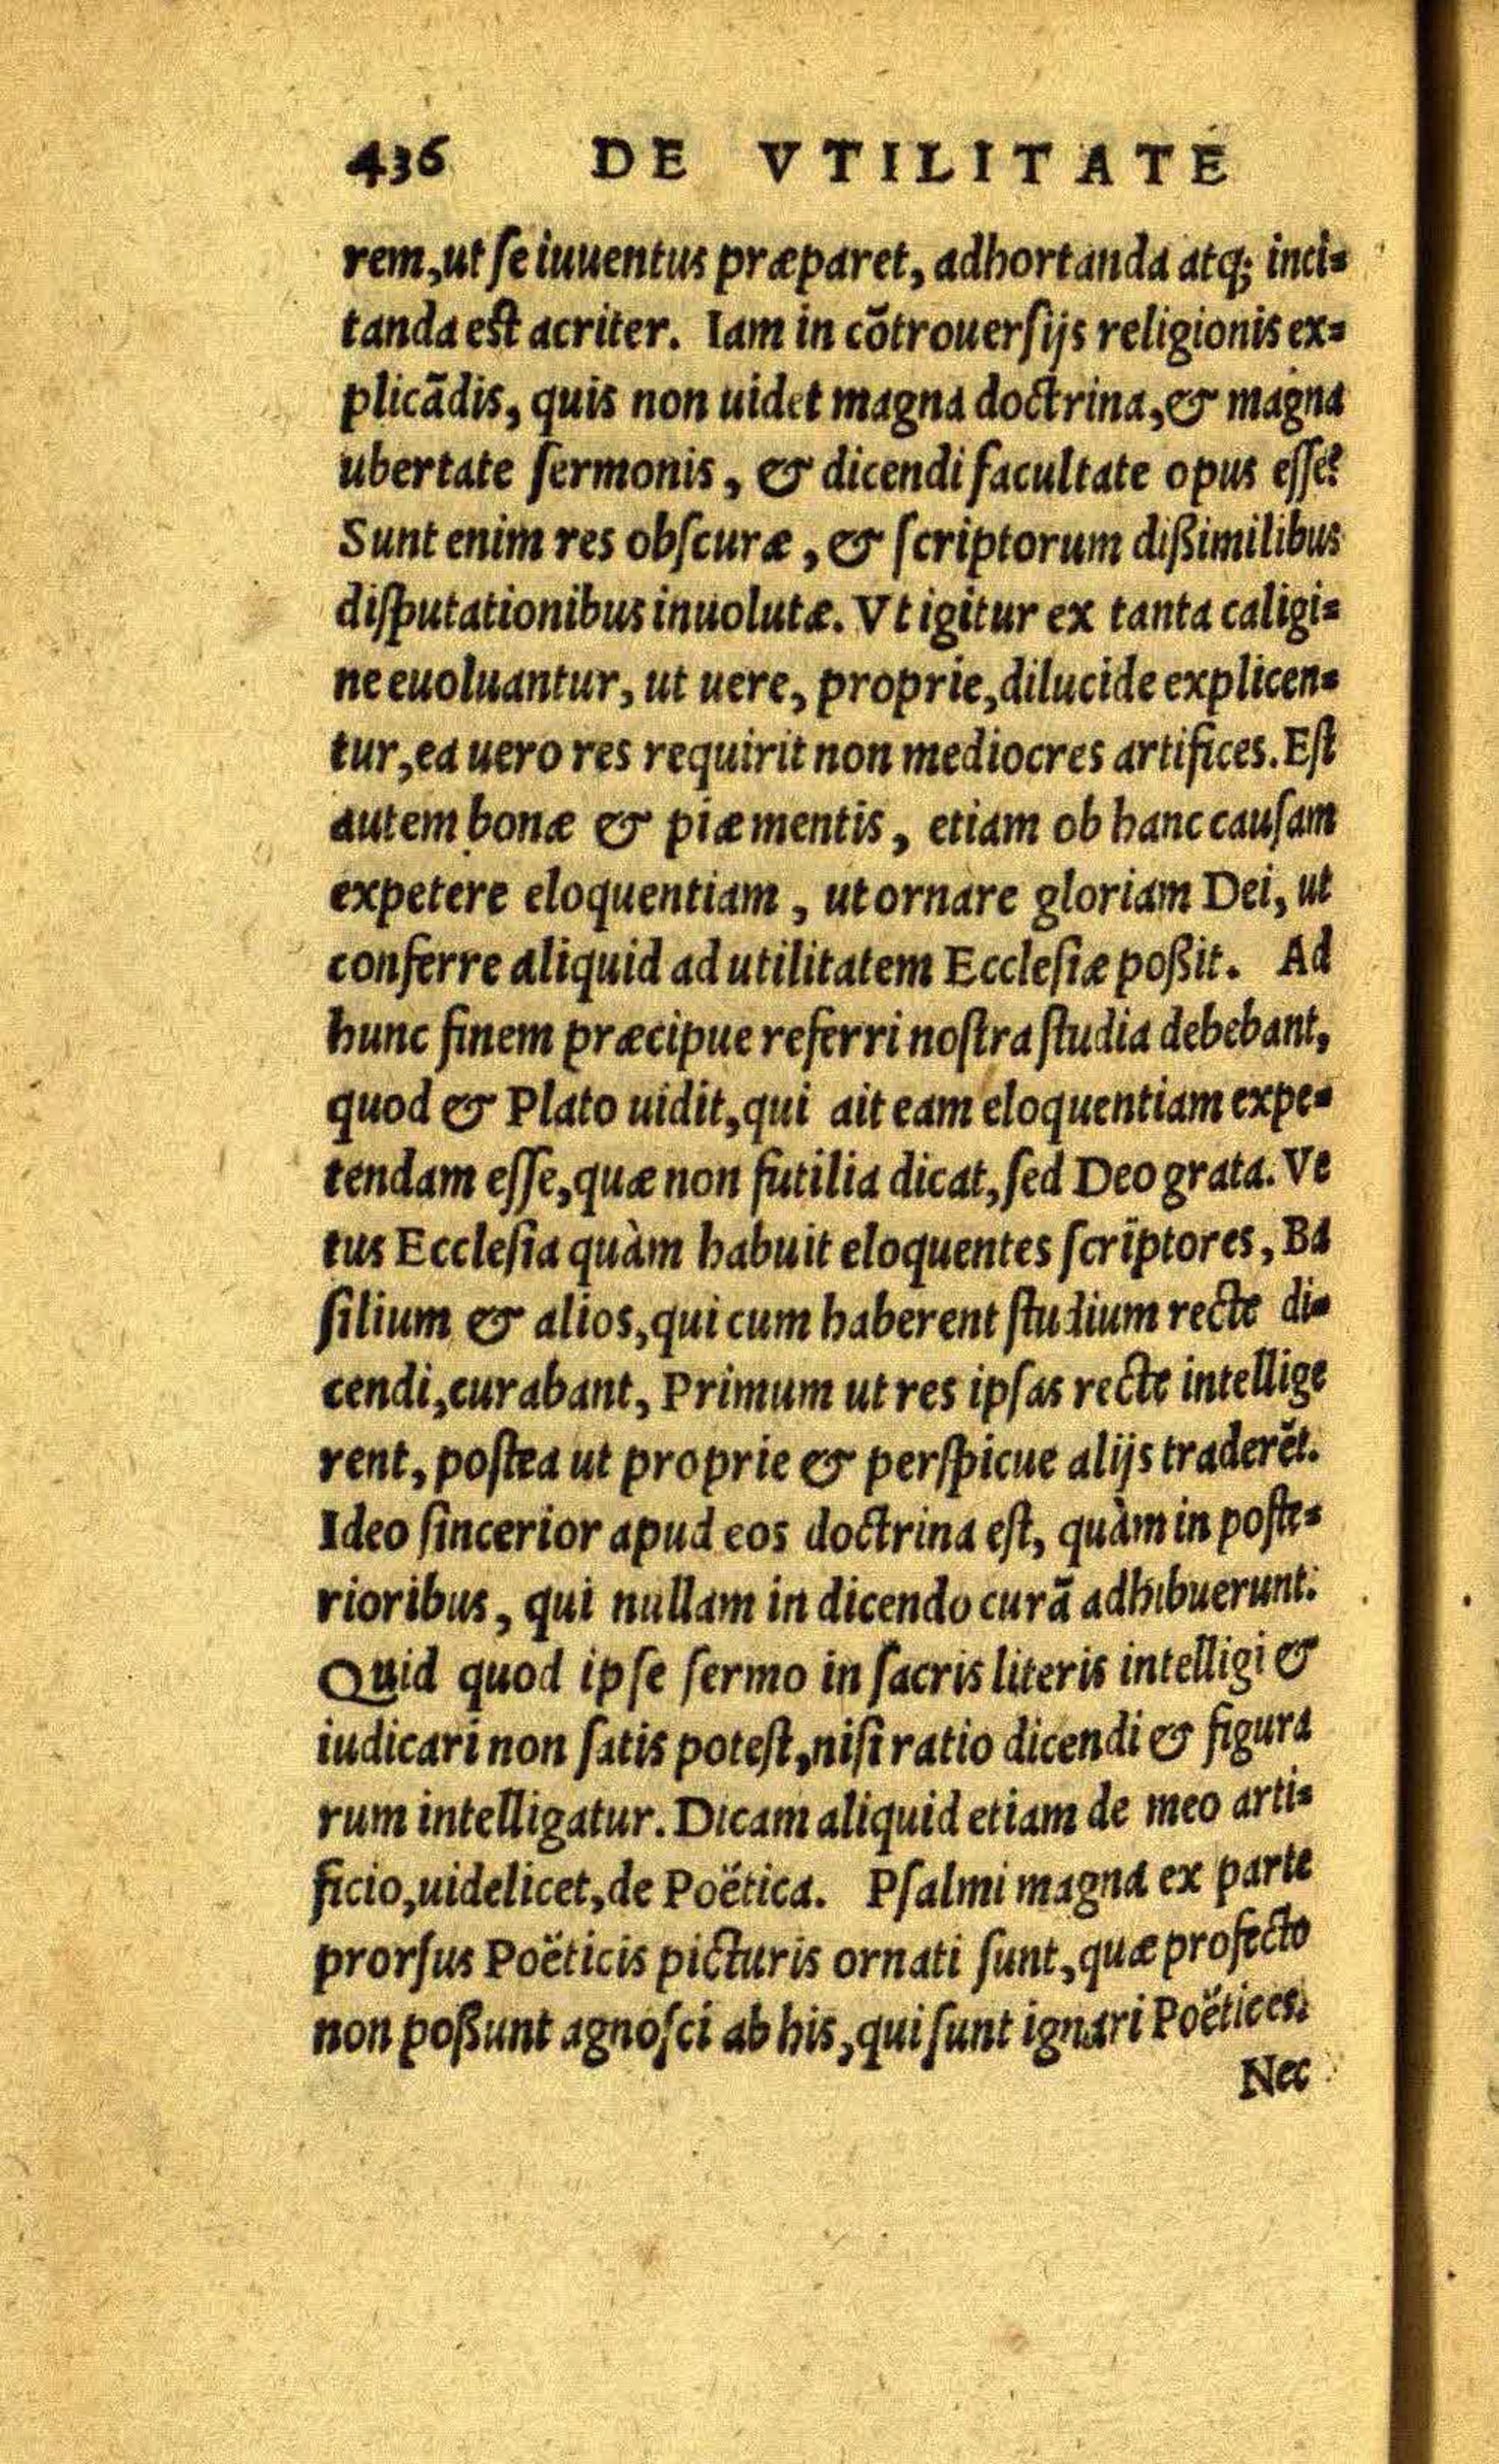 436 DE VTILITATE
rem, ut se iuuentus præparet, adhortanda atq; inci-
tanda est acriter. Iam in cõtrouersijs religionis ex-
plicãdis, quis non uidet magna doctrina, & magna
ubertate sermonis, & dicendi facultate opus esse?
Sunt enim res obscuræ, & scriptorum dißimilibus
disputationibus inuolutæ. Vt igitur ex tanta caligi-
ne euoluantur, ut uere, proprie, dilucide explicen-
tur, ea uero res requirit non mediocres artifices. Est
autem bonæ & piæ mentis, etiam ob hanc causam
expetere eloquentiam, ut ornare gloriam Dei, ut
conferre aliquid ad utilitatem Ecclesiæ poßit. Ad
hunc finem præcipue referri nostra studia debebant,
quod & Plato uidit, qui ait eam eloquentiam expe-
tendam esse, quæ non futilia dicat, sed Deo grata. Ve
tus Ecclesia quàm habuit eloquentes scriptores, Ba
silium & alios, qui cum haberent studium recte di-
cendi, curabant, Primum ut res ipsas recte intellige
rent, postea ut proprie & perspicue alijs traderẽt.
Ideo sincerior apud eos doctrina est, quàm in poste-
rioribus, qui nullam in dicendo curã adhibuerunt.
Quid quod ipse sermo in sacris literis intelligi &
iudicari non satis potest, nisi ratio dicendi & figura
rum intelligatur. Dicam aliquid etiam de meo arti-
ficio, uidelicet, de Poëtica. Psalmi magna ex parte
prorsus Poëticis picturis ornati sunt, quæ profecto
non poßunt agnosci ab his, qui sunt ignari Poëtices.
Nec